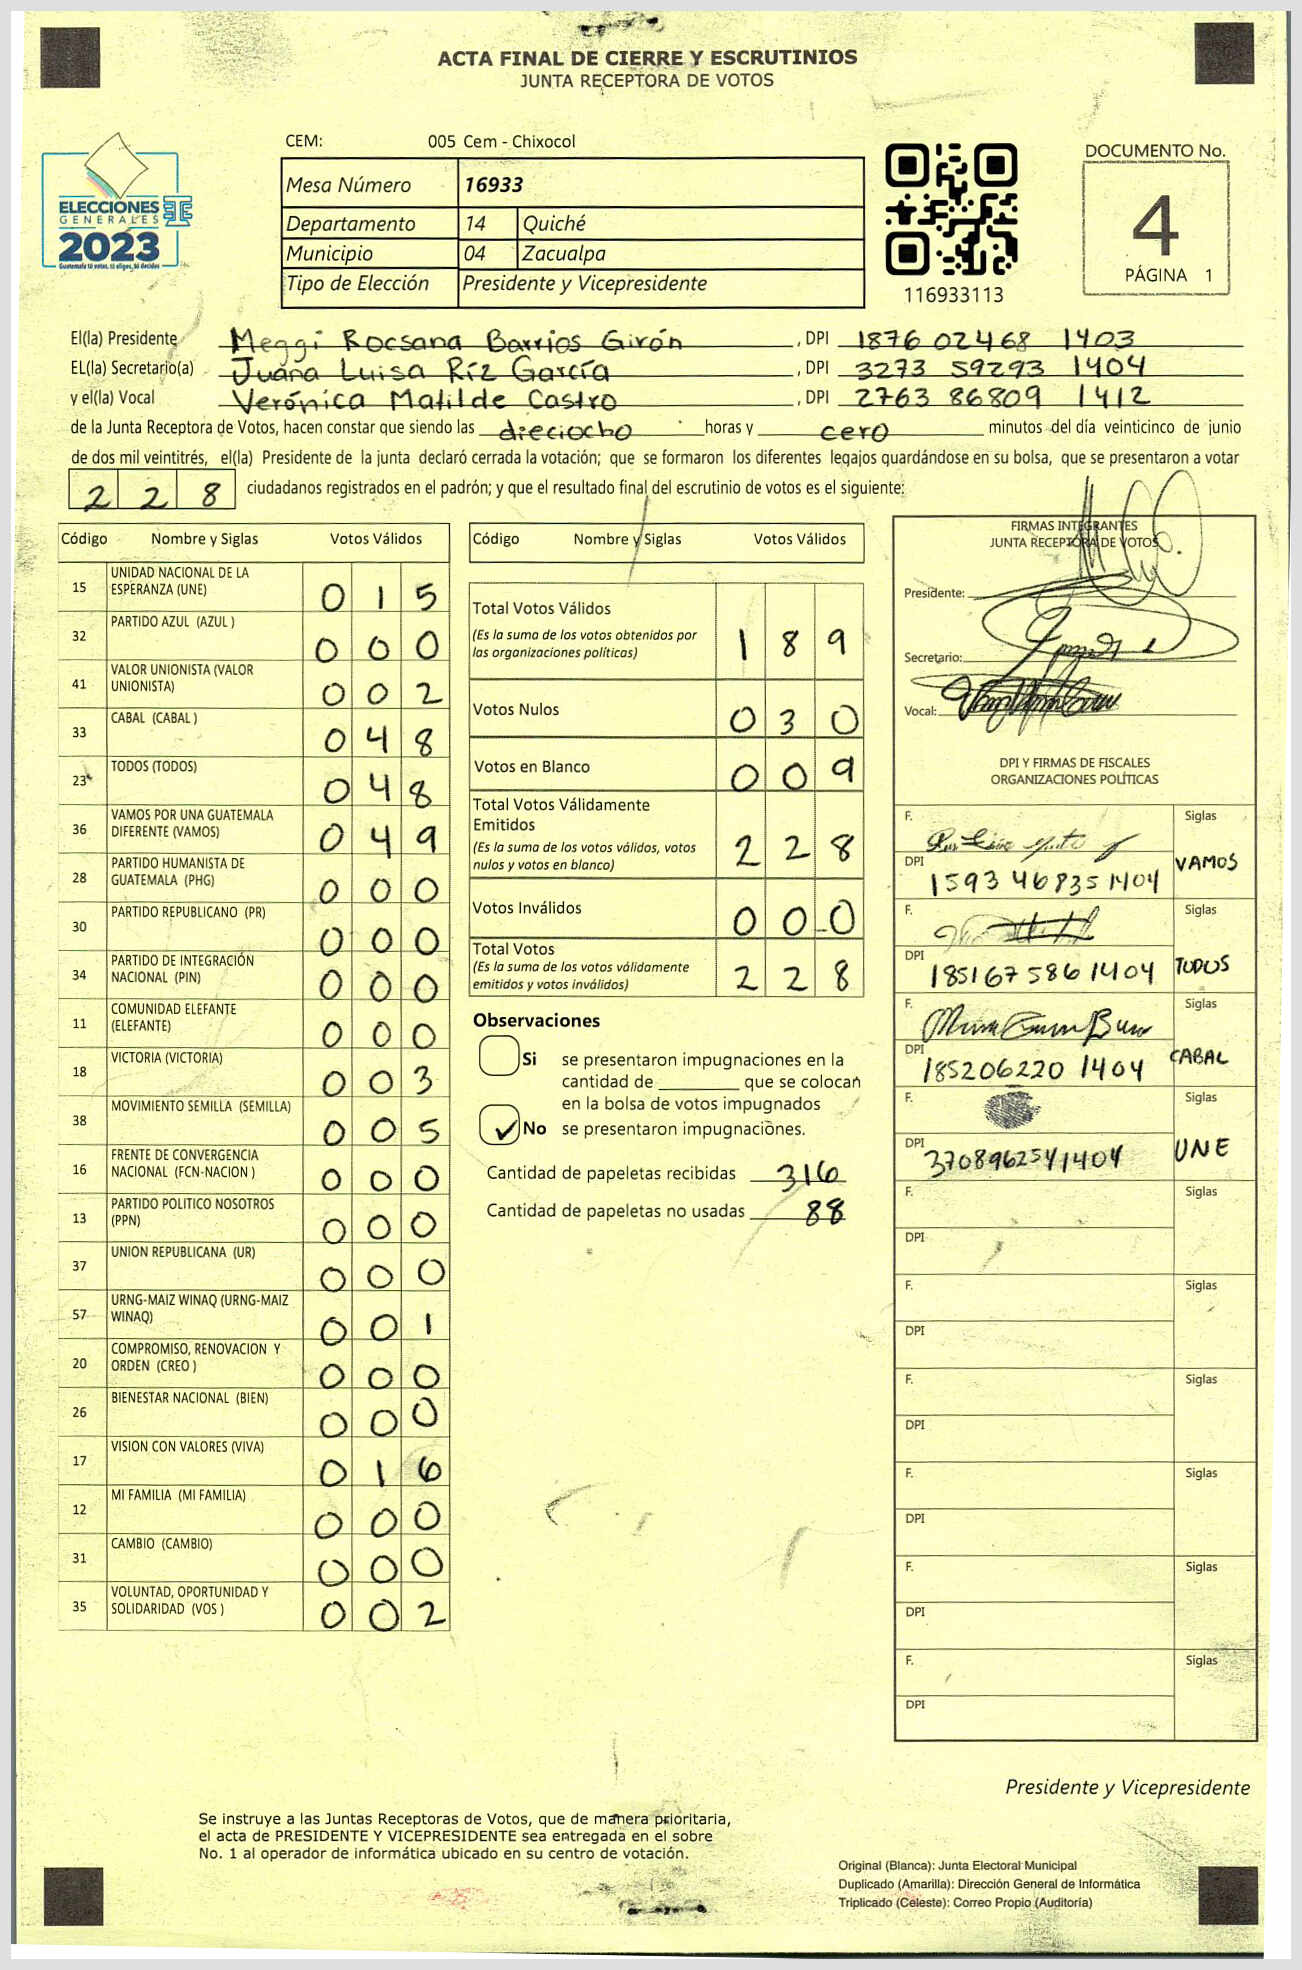 ACTA FINAL DE CIERRE Y ESCRUTINIOS
JUNTA RECEPTORA DE VOTOS
ELECCIONES
GENERALES
2023
Guatemala tú votas, tú eliges, tú decides
CEM: 005 Cem - Chixocol
Mesa Número 16933
Departamento 14 Quiché
Municipio 04 Zacualpa
Tipo de Elección Presidente y Vicepresidente
116933113
DOCUMENTO No.
4
PÁGINA 1
El(la) Presidente Meggi Rocsana Barrios Girón, DPI 1876 02468 1403
EL(la) Secretario(a) Juana Luisa Ríz García, DPI 3273 59293 1404
y el(la) Vocal Verónica Matilde Castro, DPI 2763 86809 1412
de la Junta Receptora de Votos, hacen constar que siendo las dieciocho horas y cero minutos del día veinticinco de junio
de dos mil veintitrés, el(la) Presidente de la junta declaró cerrada la votación; que se formaron los diferentes legajos quardándose en su bolsa, que se presentaron a votar
2 2 8 ciudadanos registrados en el padrón; y que el resultado final del escrutinio de votos es el siguiente:
Código Nombre y Siglas Votos Válidos
15 UNIDAD NACIONAL DE LA ESPERANZA (UNE) 0 1 5
32 PARTIDO AZUL (AZUL ) 0 0 0
41 VALOR UNIONISTA (VALOR UNIONISTA) 0 0 2
33 CABAL (CABAL ) 0 4 8
23 TODOS (TODOS) 0 4 8
36 VAMOS POR UNA GUATEMALA DIFERENTE (VAMOS) 0 4 9
28 PARTIDO HUMANISTA DE GUATEMALA (PHG) 0 0 0
30 PARTIDO REPUBLICANO (PR) 0 0 0
34 PARTIDO DE INTEGRACIÓN NACIONAL (PIN) 0 0 0
11 COMUNIDAD ELEFANTE (ELEFANTE) 0 0 0
18 VICTORIA (VICTORIA) 0 0 3
38 MOVIMIENTO SEMILLA (SEMILLA) 0 0 5
16 FRENTE DE CONVERGENCIA NACIONAL (FCN-NACION ) 0 0 0
13 PARTIDO POLITICO NOSOTROS (PPN) 0 0 0
37 UNION REPUBLICANA (UR) 0 0 0
57 URNG-MAIZ WINAQ (URNG-MAIZ WINAQ) 0 0 1
20 COMPROMISO, RENOVACION Y ORDEN (CREO ) 0 0 0
26 BIENESTAR NACIONAL (BIEN) 0 0 0
17 VISION CON VALORES (VIVA) 0 1 6
12 MI FAMILIA (MI FAMILIA) 0 0 0
31 CAMBIO (CAMBIO) 0 0 0
35 VOLUNTAD, OPORTUNIDAD Y SOLIDARIDAD (VOS ) 0 0 2
Código Nombre y Siglas Votos Válidos
Total Votos Válidos 1 8 9
(Es la suma de los votos obtenidos por
las organizaciones políticas)
Votos Nulos 0 3 0
Votos en Blanco 0 0 9
Total Votos Válidamente
Emitidos 2 2 8
(Es la suma de los votos válidos, votos
nulos y votos en blanco)
Votos Inválidos 0 0 0
Total Votos 2 2 8
(Es la suma de los votos válidamente
emitidos y votos inválidos)
Observaciones
Si se presentaron impugnaciones en la
cantidad de ________ que se colocan
en la bolsa de votos impugnados
No se presentaron impugnaciones.
Cantidad de papeletas recibidas 316
Cantidad de papeletas no usadas 88
FIRMAS INTEGRANTES
JUNTA RECEPTORA DE VOTOS
Presidente:
Secretario:
Vocal:
DPI Y FIRMAS DE FISCALES
ORGANIZACIONES POLÍTICAS
F. Siglas
DPI 1593 46835 1404 VAMOS
F. Siglas
DPI 185167586 1404 TODOS
F. Siglas
DPI 185206220 1404 CABAL
F. Siglas
DPI 370896254 1404 UNE
F. Siglas
DPI
F. Siglas
DPI
F. Siglas
DPI
F. Siglas
DPI
F. Siglas
DPI
F. Siglas
DPI
Presidente y Vicepresidente
Se instruye a las Juntas Receptoras de Votos, que de manera prioritaria,
el acta de PRESIDENTE Y VICEPRESIDENTE sea entregada en el sobre
No. 1 al operador de informática ubicado en su centro de votación.
Original (Blanca): Junta Electoral Municipal
Duplicado (Amarilla): Dirección General de Informática
Triplicado (Celeste): Correo Propio (Auditoría)